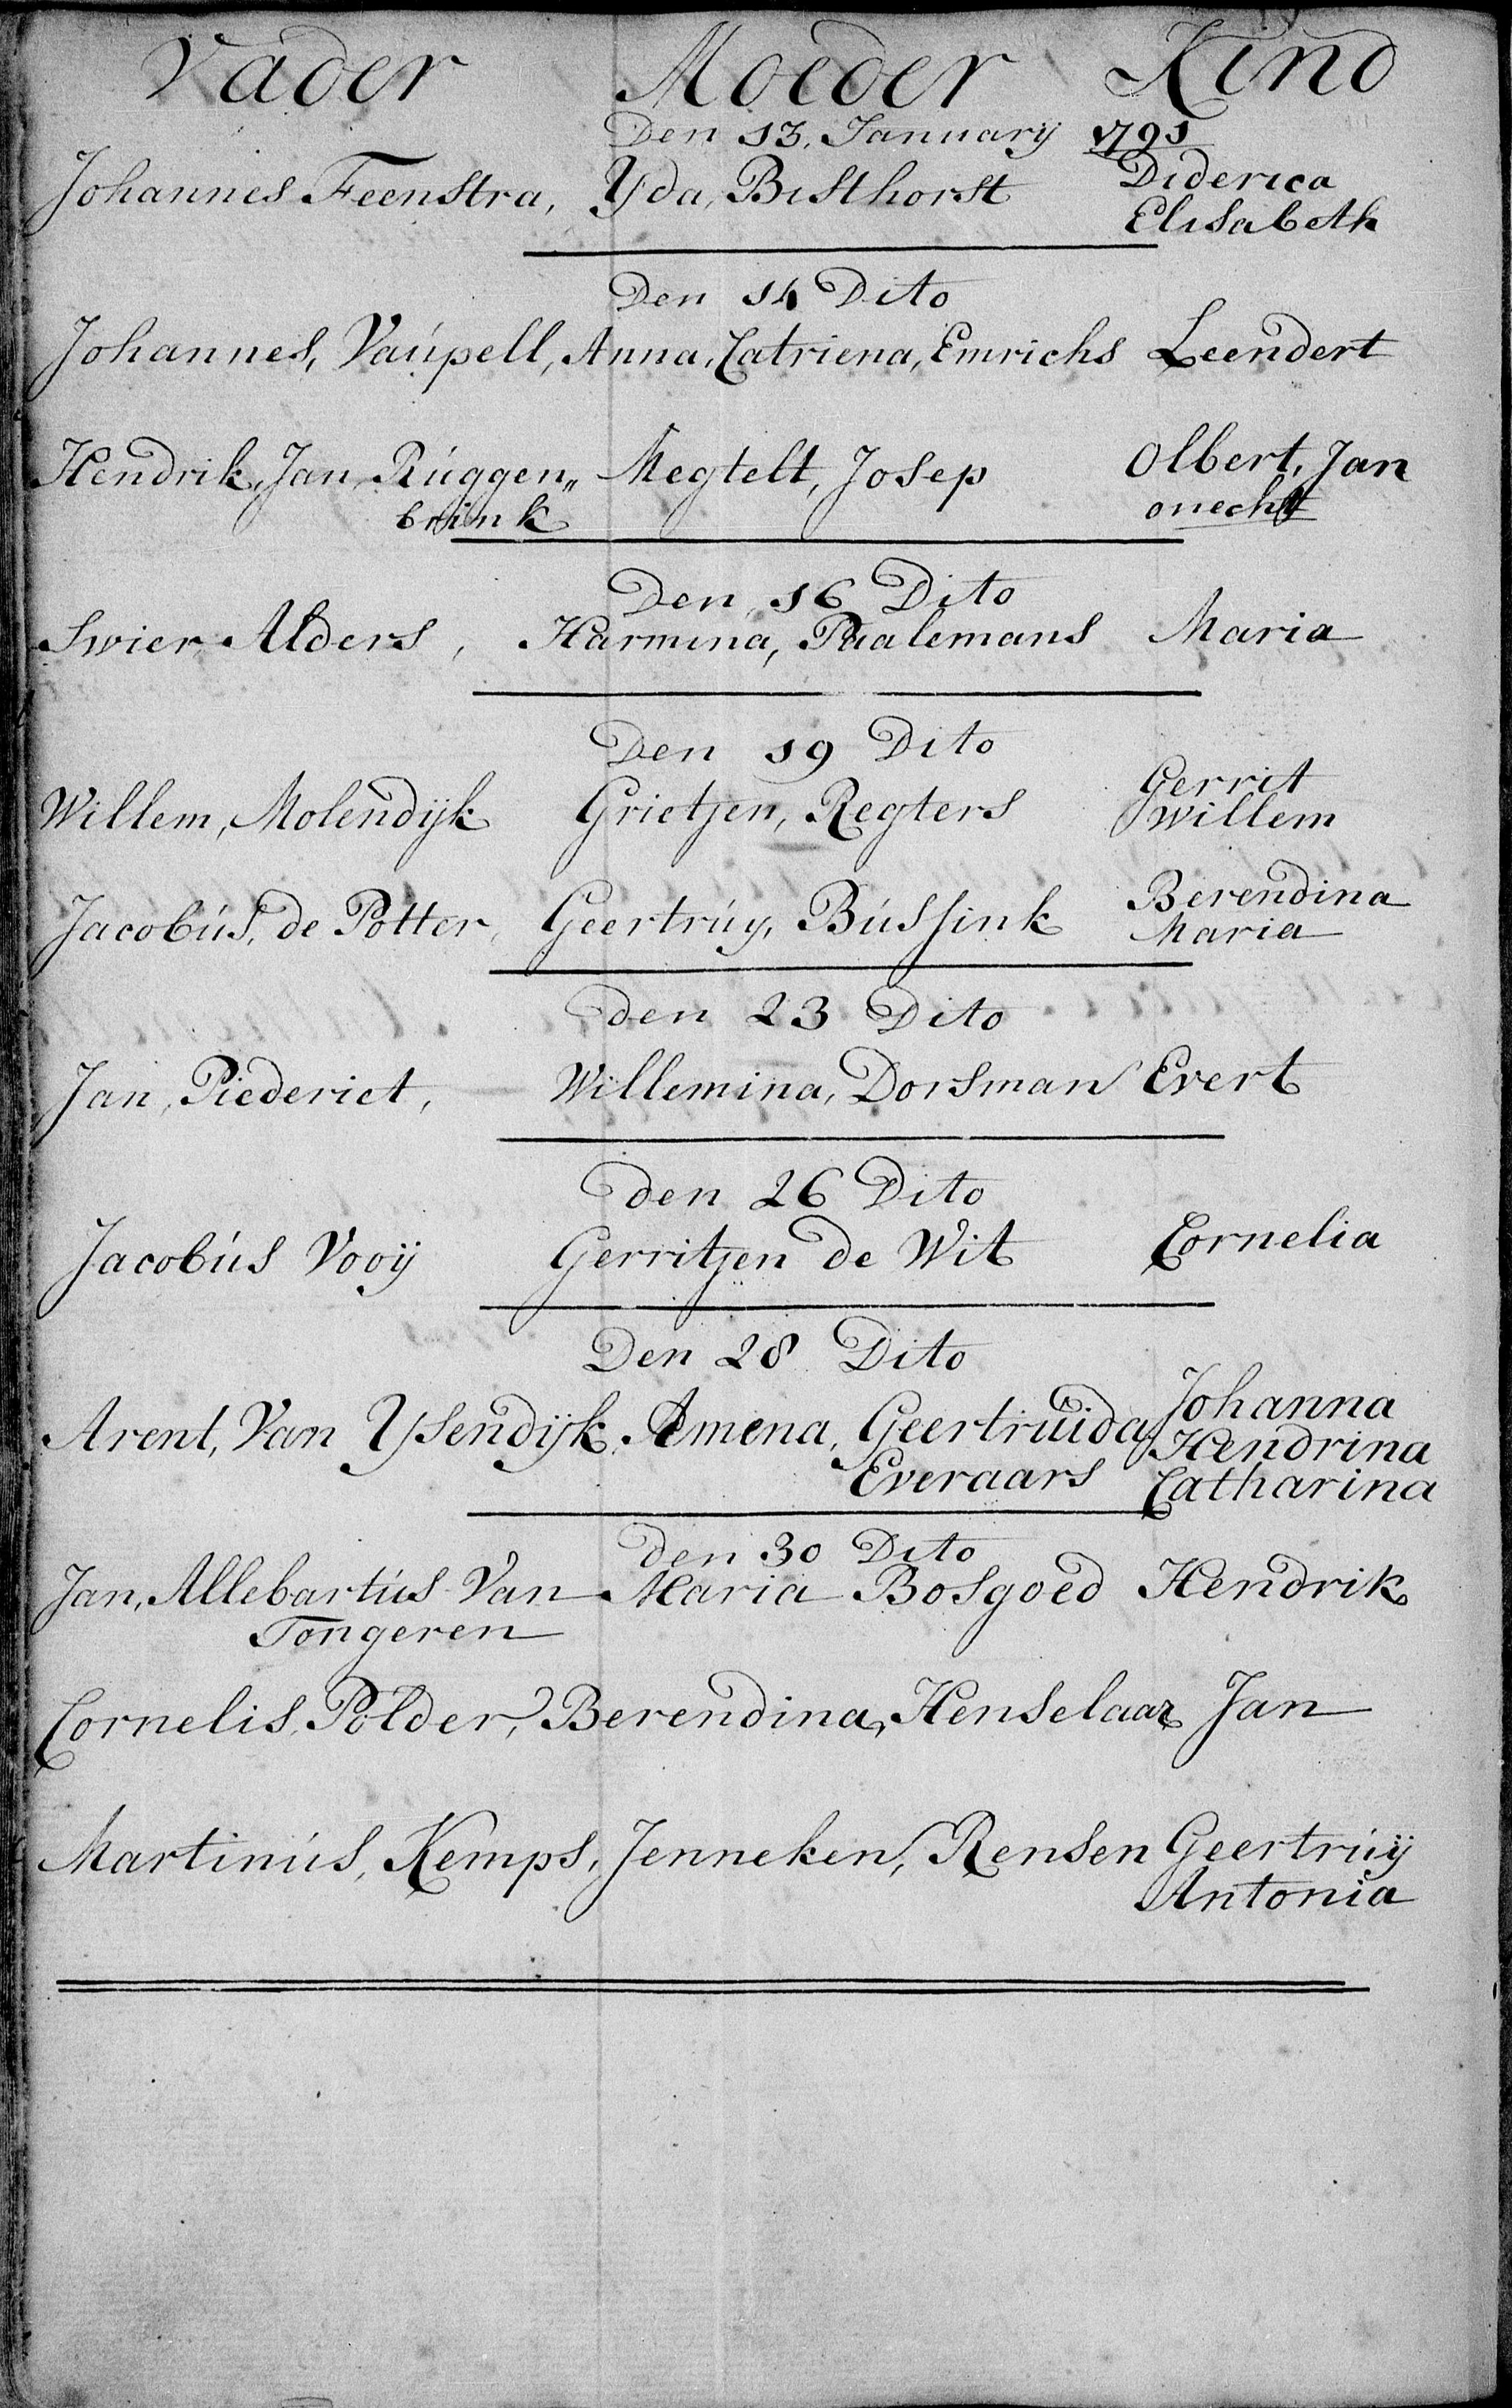 Vader Moeder Kind
Den 13. January 1791
Johannes Feenstra, Yda, Bisthorst Diderica
Elisabeth
Den 14 Dito
Johannes, Vaúpell, Anna, Catriena, Emrichs Leendert
Hendrik, Jan, Rúggen„ Megtelt, Josep Olbert, Jan
brink onecht
Den 16 Dito
Swier Alders, Harmina, Paalemans Maria
Den 19 Dito
Willem, Molendijk Grietjen, Regters Gerrit
Willem
Jacobús, de Potter, Geertrúy, Bússink Berendina
Maria
den 23 Dito
Jan, Piederiet, Willemina, Dorsman Evert
den 26 Dito
Jacobús Vooij Gerritjen de Wit Cornelia
Den 28 Dito
Arent, Van Ysendijk, Amena, Geertruida Johanna
Everaars Hendrina
Catharina
den 30 Dito
Jan, Allebartús Van Maria Bosgoed Hendrik
Tongeren
Cornelis, Polder, Berendina, Henselaar Jan
Martinús, Kemps, Jenneken, Rensen Geertrúij
Antonia